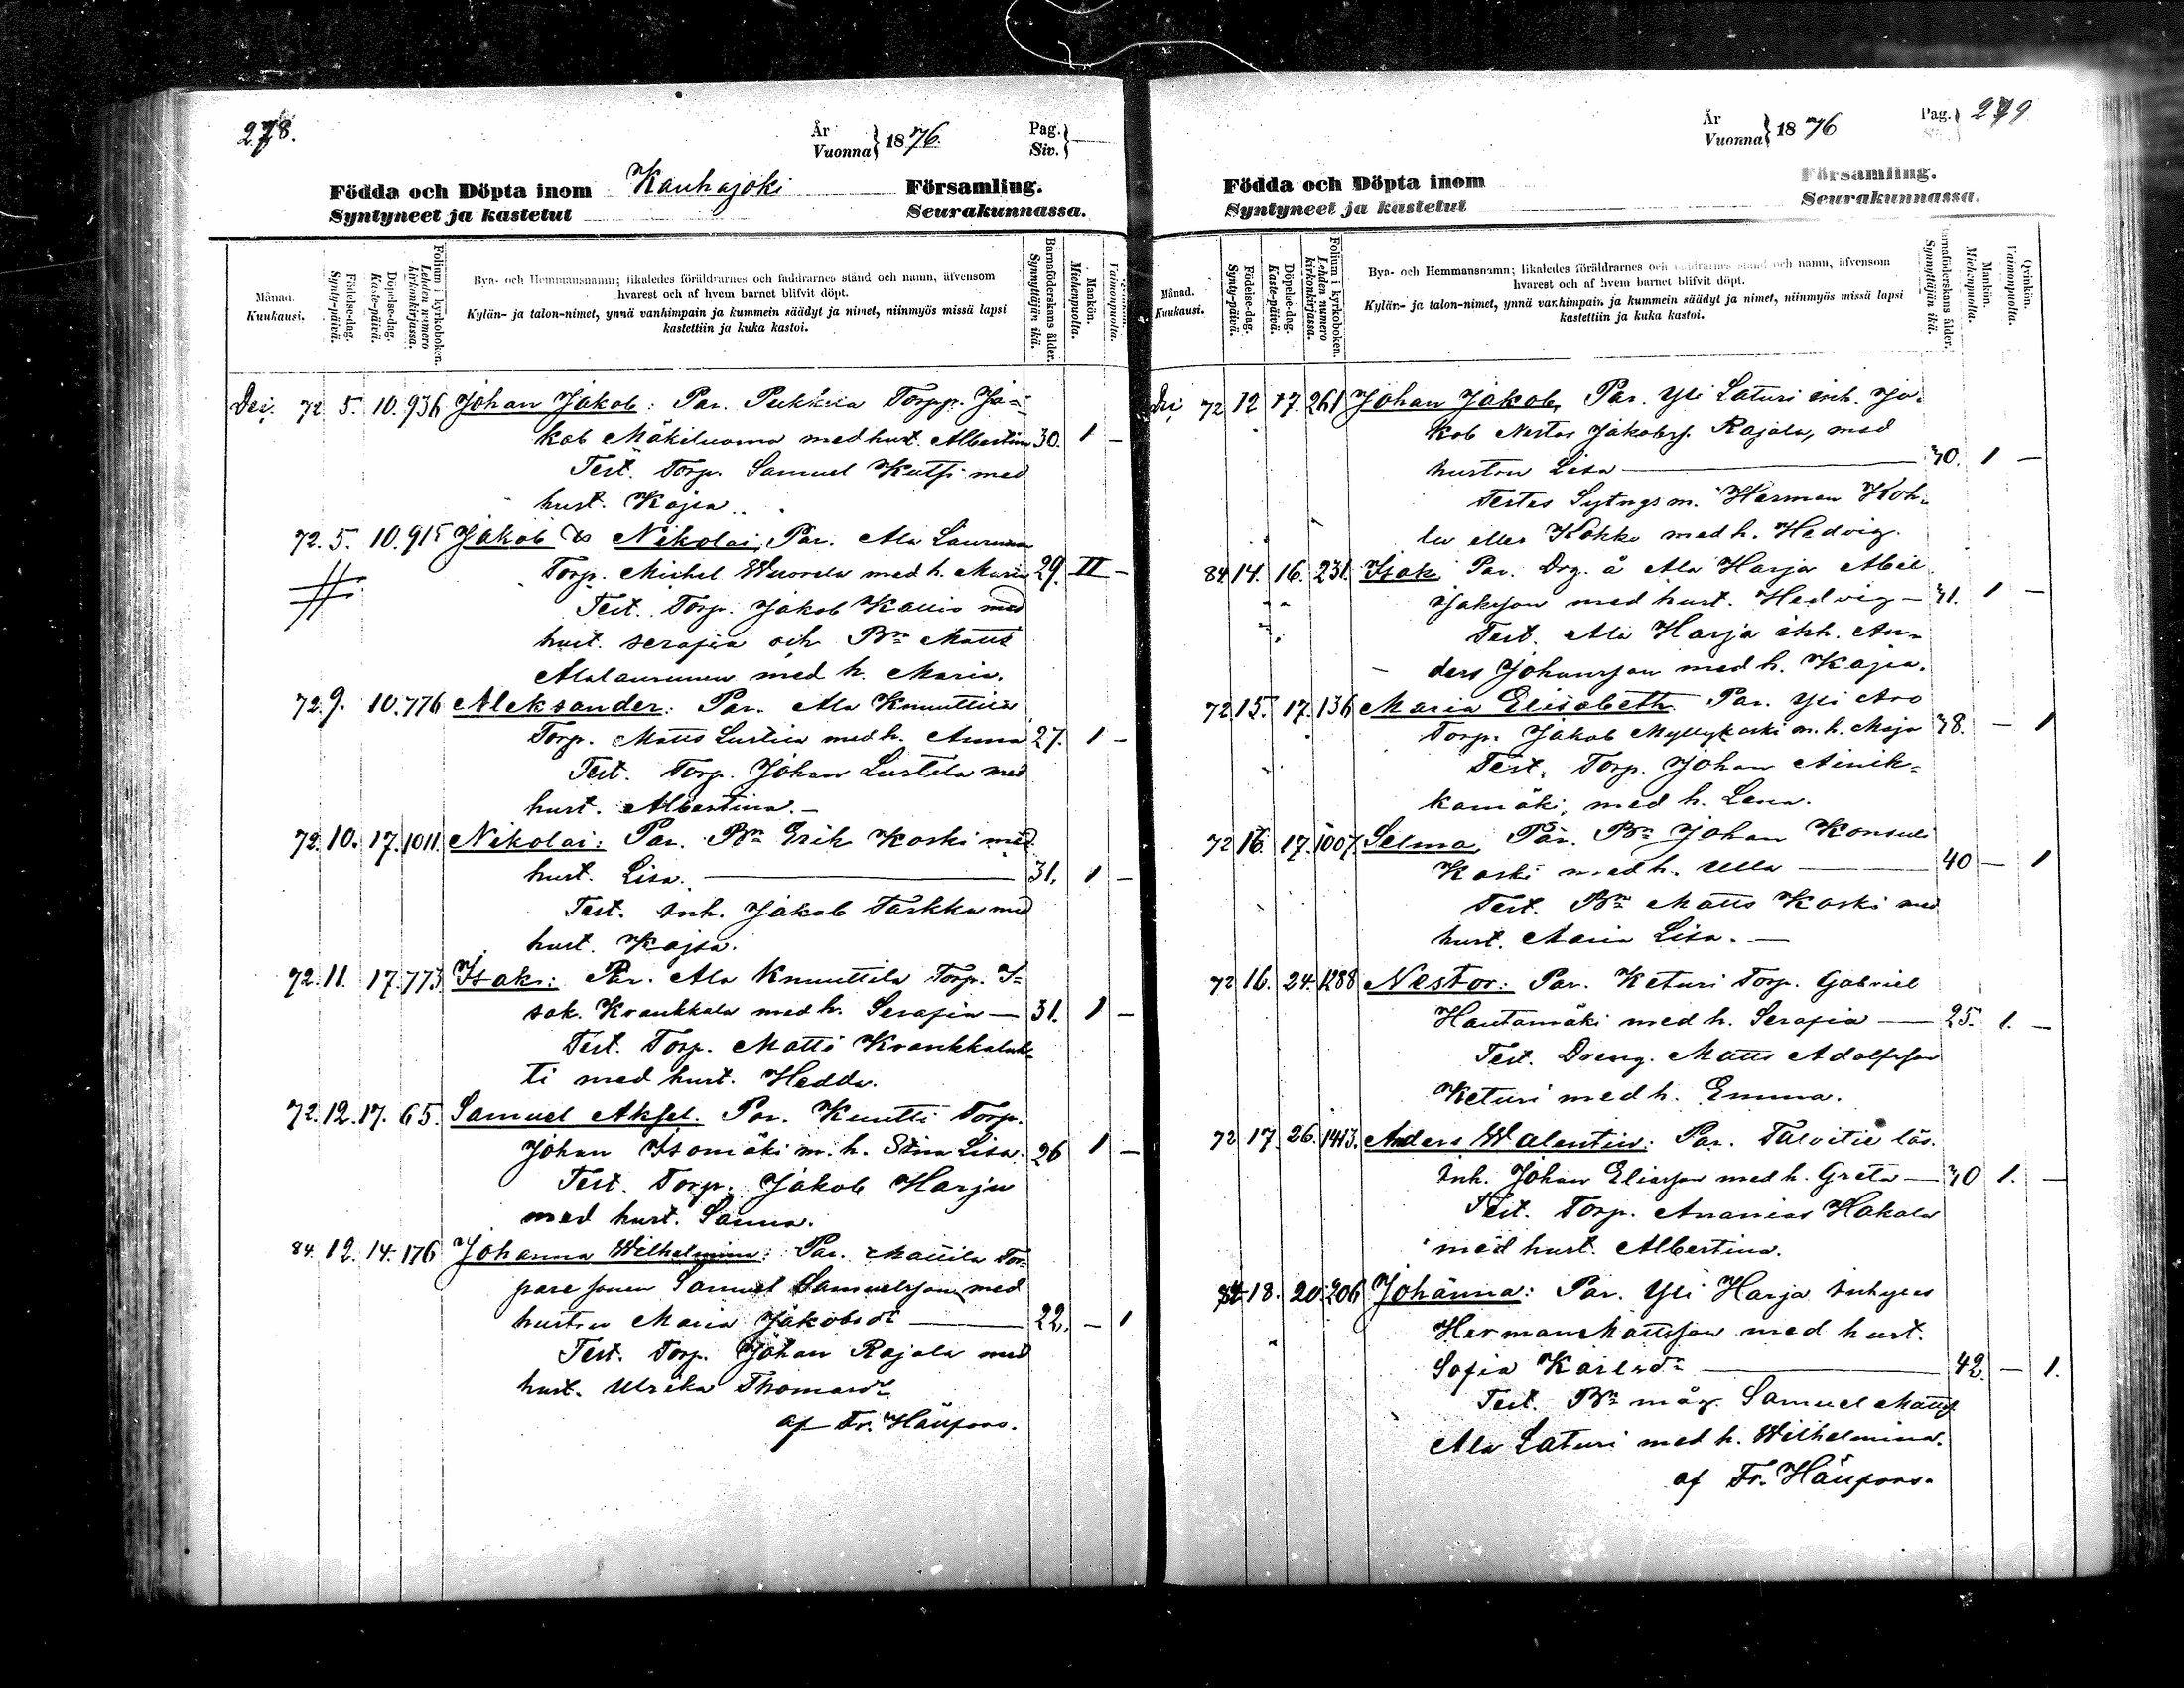 278.
År
Vuonna } 1876.
Pag.
Siv. }
Födda och Döpta inom Kauhajoki Församling.
Syntyneet ja kastetut Seurakunnassa.
Månad.
Kuukausi.
Födelse-dag.
Synty-päivä.
Döpelse-dag.
Kaste-päivä.
Folium i kyrkoboken.
Lehden numero kirkonkirjassa.
Bya- och Hemmansnamn; likaledes föräldrarnes och faddrarnes stånd och namn, äfvensom
hvarest och af hvem barnet blifvit döpt.
Kylän- ja talon-nimet, ynnä vanhimpain ja kummein säädyt ja nimet, niinmyös missä lapsi
kastettiin ja kuka kastoi.
Barnaföderskans ålder.
Synnyttäjän ikä.
Mankön.
Miehenpuolta.
Vaimonpuolta.
72. 5. 10. 936 Johan Jakob: Par. Torp. Ja-
kob Mäkiluoma med hust. Albertina 30. 1 –
Test. Torp. Samuel med
hust. Kajsa.
72. 5. 10. 915 Jakob & Nikolai, Par. Ala
Torp. Michel Wuorela med h. Maria 29. II –
Test. Torp. Jakob Kallio med
hust. Serafia och Bn Matts
med h. Maria.
72. 9. 10. 776 Aleksander: Par. Ala Knuuttila
Torp. Matts med h. Anna 27. 1 –
Test. Torp. Johan Lustila med
hust. Albertina. –
72. 10. 17. 1011. Nikolai: Par. Bn Erik Koski med
hust. Lisa. 31. 1 –
Test. Inh. Jakob Tarkka med
hust. Kajsa.
72. 11. 17. 773 Isak: Par. Ala Knuuttila Torp. I-
sak. Krankkala med h. Serafia – 31. 1 –
Test. Torp. Matts
ti med hust. Hedda.
72. 12. 17. 65. Samuel Aksel. Par. Knutti Torp.
Johan Isomäki m. h. Stina Lisa. 26 1 –
Test. Torp. Jakob Harju
med hust. Sanna.
84. 12. 14. 176 Johanna Wilhelmina: Par. Mattila Tor-
pare sonen Samuel Samuelsson med
hustru Maria Jakobsdr 22. – 1
Test. Torp. Johan Rajala med
hust. Ulrika Thomasdr
af Fr.
År
Vuonna } 1876
Pag. } 279
Födda och Döpta inom Församling.
Syntyneet ja kastetut Seurakunnassa.
Månad.
Kuukausi.
Födelse-dag.
Synty-päivä.
Döpelse-dag.
Kaste-päivä.
Folium i kyrkoboken.
Lehden numero kirkonkirjassa.
Bya- och Hemmansnamn; likaledes föräldrarnes och faddrarnes stånd och namn, äfvensom
hvarest och af hvem barnet blifvit döpt.
Kylän- ja talon-nimet, ynnä vanhimpain ja kummein säädyt ja nimet, niinmyös missä lapsi
kastettiin ja kuka kastoi.
Barnaföderskans ålder.
Synnyttäjän ikä.
Mankön.
Miehenpuolta.
Qvinkön.
Vaimonpuolta.
72 12 17. 261 Johan Jakob, Par. Yli Laturi inh. Ja-
kob Nestor Jakobss. Rajala, med
hustru Lisa 30. 1 –
Testes Sytngsm. Herman
eller Kokko med h. Hedvig.
84 14. 16. 231. Isak Par. Drg. å Ala Harja Abel
Jakssson med hust. Hedvig – 31. 1 –
Test. Ala Harja inh. An-
ders Johansson med h. Kajsa.
72 15. 17. 136 Maria Elisabeth. Par. Yli Aro
Torp. Jakob Myllykoski m. h. Maja 38. – 1
Test. Torp. Johan Ainik-
kamäki, med h. Lena.
72 16. 17. 1007. Selma, Par. Bn Johan
Koski med h. Ulla 40 – 1
Test. Bn Matts Koski med
hust. Maria Lisa. –
72 16. 24. 1288 Nestor: Par. Keturi Torp. Gabriel
Hautamäki med h. Serafia – 25. 1. –
Test. Dreng. Matts Adolfsson
Keturi med h. Emma.
72 17. 26. 1413. Anders Walentin: Par. Talvitie lös.
Inh. Johan Eliasson med h. Greta – 30 1. –
Test. Torp. Ananias Hakala
med hust. Albertina.
18. 20. 206 Johanna: Par. Yli Harja inhyses
Herman Mattsson med hust.
Sofia Karlsdr 42. – 1.
Test. Bn måg. Samuel Mattss.
Ala Laturi med h. Wilhelmina.
af Fr.